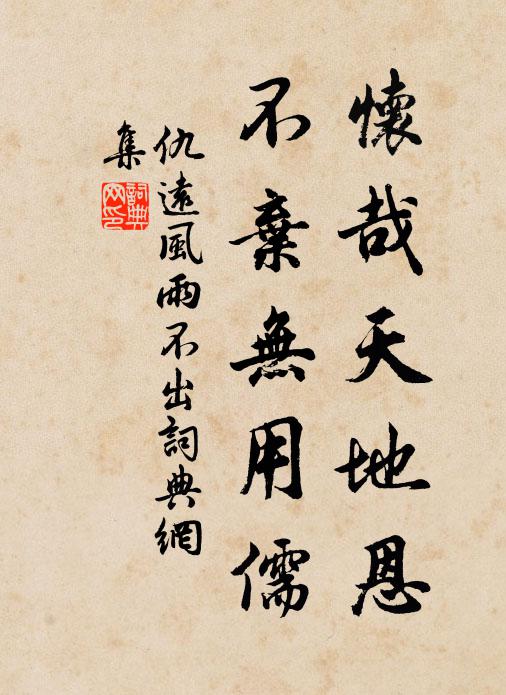 懷哉天地恩
不棄無用儒
仇遠風雨不出詞典網
集
詞典
网印